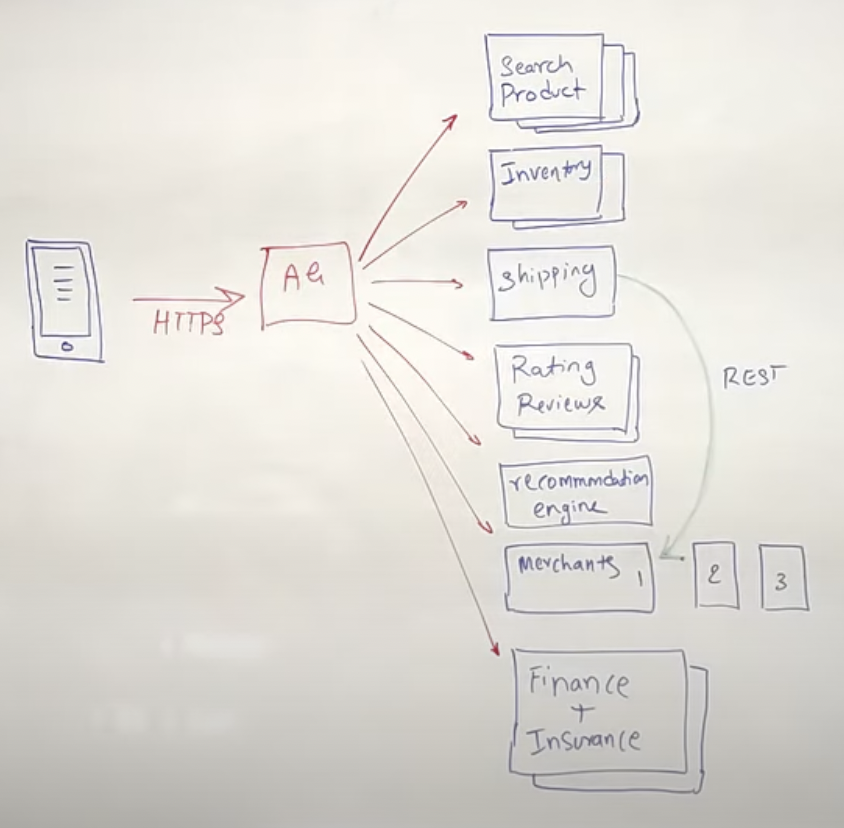 Search
Product
Inventory
Shipping
HTTPS
AG
Rating
Reviews
REST
recommndation
engine
Merchants 1
2
3
Finance
+
Insurance